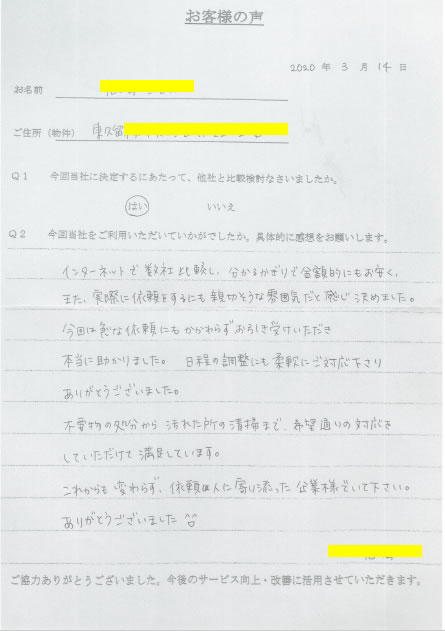 お客様の声
2020 年 3 月 14 日
お名前
ご住所（物件） 東久留
Q1 今回当社に決定するにあたって、他社と比較検討なさいましたか。
はい いいえ
Q2 今回当社をご利用いただいていかがでしたか。具体的に感想をお願いします。
インターネットで数社比較し、分かるかぎりで金額的にもお安く、
また、実際に依頼をするにも親切そうな雰囲気だと感じ決めました。
今回は急な依頼にもかかわらずお引き受けいただき
本当に助かりました。 日程の調整にも柔軟にご対応下さり
ありがとうございました。
不要物の処分から汚れた所の清掃まで、希望通りの対応を
していただけて満足しています。
これからも変わらず、依頼人に寄り添った企業様でいて下さい。
ありがとうございました
ご協力ありがとうございました。今後のサービス向上・改善に活用させていただきます。